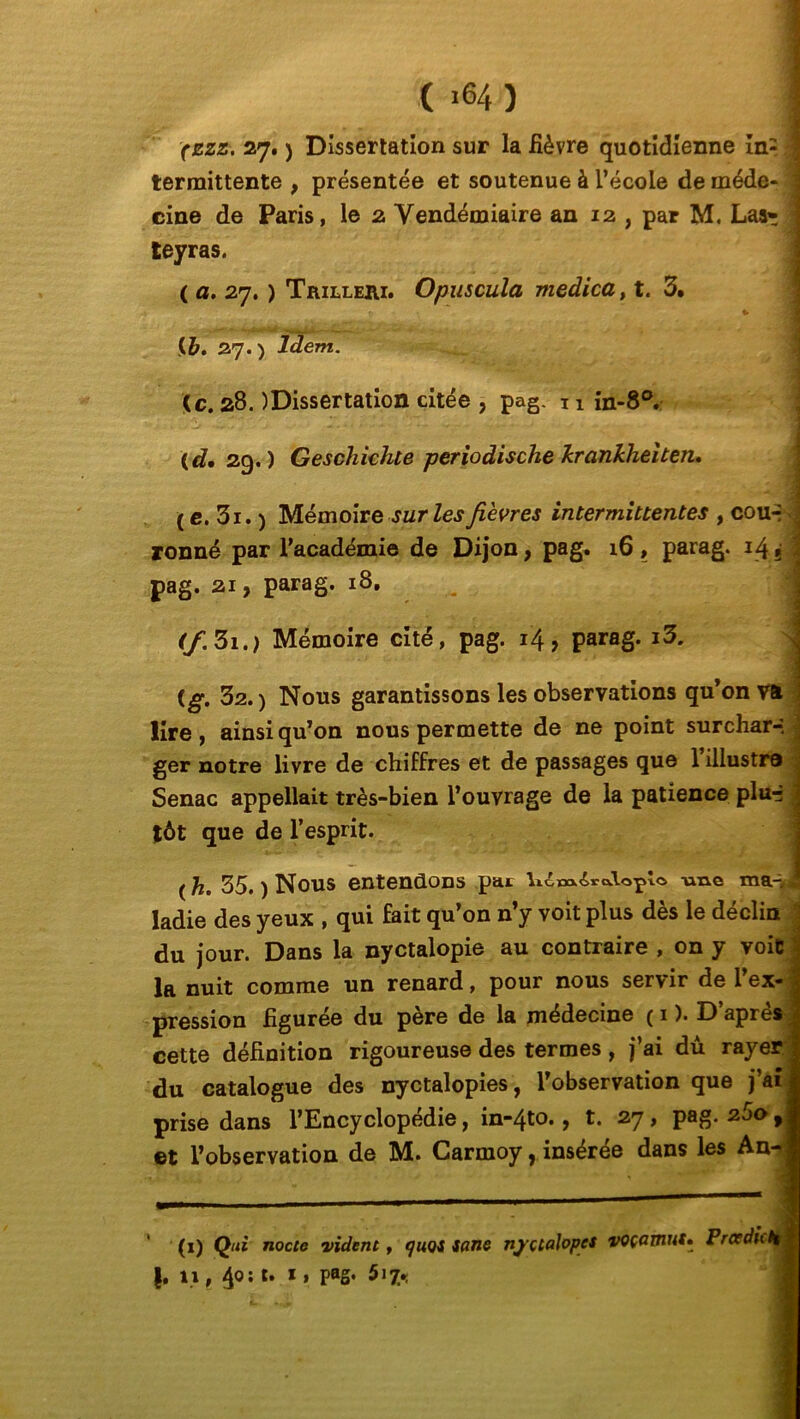 ( 164 )
(zzz. 27. ) Dissertation sur la fièvre quotidienne in-
termittente , présentée et soutenue à l'école de méde-
cine de Paris, le 2 Vendémiaire an 12 , par M. Las-
teyras.
( a. 27. ) TRILLERI. Opuscula medica, t. 3.
(b. 27.) Idem.
(c. 28. )Dissertation citée , pag. 11 in-8°.
(d. 29. ) Geschichte periodische krankheiten.
( e. 31. ) Mémoire sur les fièvres intermittentes , cou-
ronné par l'académie de Dijon, pag. 16, parag. 14,
pag. 21, parag. 18.
(f. 31.) Mémoire cité, pag. 14, parag. 13.
(g. 32. ) Nous garantissons les observations qu'on va
lire, ainsi qu'on nous permette de ne point surchar-
ger notre livre de chiffres et de passages que l'illustre
Senac appellait très-bien l'ouvrage de la patience plu-
tôt que de l'esprit.
(h. 35. ) Nous entendons par héméralopie une ma-
ladie des yeux , qui fait qu'on n'y voit plus dès le déclin
du jour. Dans la nyctalopie au contraire , on y voit
la nuit comme un renard, pour nous servir de l'ex-
pression figurée du père de la médecine (1). D'après
cette définition rigoureuse des termes, j'ai dû rayer
du catalogue des nyctalopies, l'observation que j'ai
prise dans l'Encyclopédie, in-4to., t. 27, pag. 250,
et l'observation de M. Carmoy, insérée dans les An-
(1) Qui nocte vident, quos sane nyctalopes vocamus. Prædict.
l. 11, 40; t. 1, pag. 517.